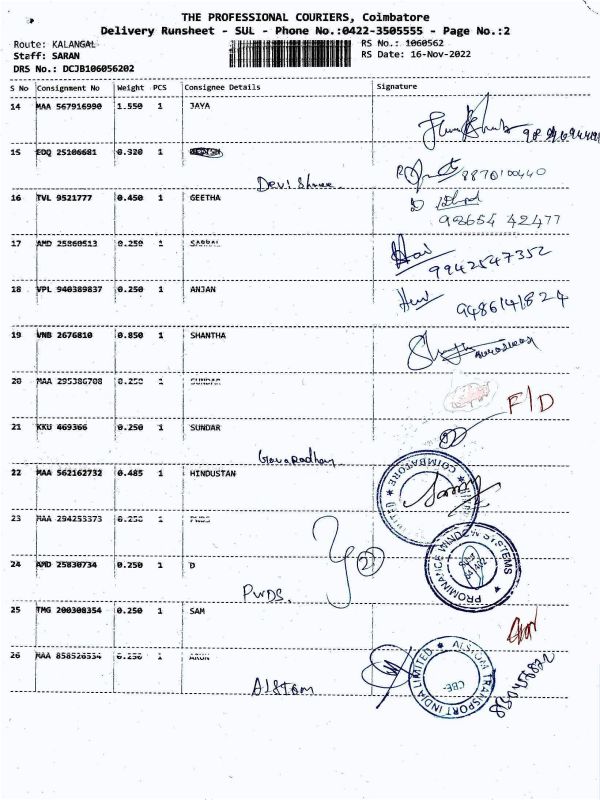 THE PROFESSIONAL COURIERS, Coimbatore
Delivery Runsheet - SUL - Phone No.:0422-3505555 - Page No.:2
Route: KALANGAL
RS No.: 1060562
Staff: SARAN
RS Date: 16-Nov-2022
DRS No.: DCJB106056202
S No Consignment No Weight PCS Consignee Details Signature
14 MAA 567916990 1.550 1 JAYA
15 EDQ 25106681 0.320 1
Devi Shree
8870100440
16 TVL 9521777 0.450 1 GEETHA
98654 42477
17 AMD 25860513 0.250 1
Hari
9942547352
18 VPL 940389837 0.250 1 ANJAN
9486141824
19 VNB 2676810 0.850 1 SHANTHA
20 MAA 295386708 0.250 1 SUNDAR
F/D
21 KKU 469366 0.250 1 SUNDAR
22 MAA 562162732 0.485 1 HINDUSTAN
COIMBATORE
LIMITED
23 MAA 294253373 0.250 1 PWDS
24 AMD 25830734 0.250 1 D
PWDS.
PROMINANCE WINDOW SYSTEMS
25 TMG 200308354 0.250 1 SAM
26 MAA 858526534 0.250 1 ARUN
Alstom
ALSTOM TRANSPORT INDIA LIMITED
CBE-